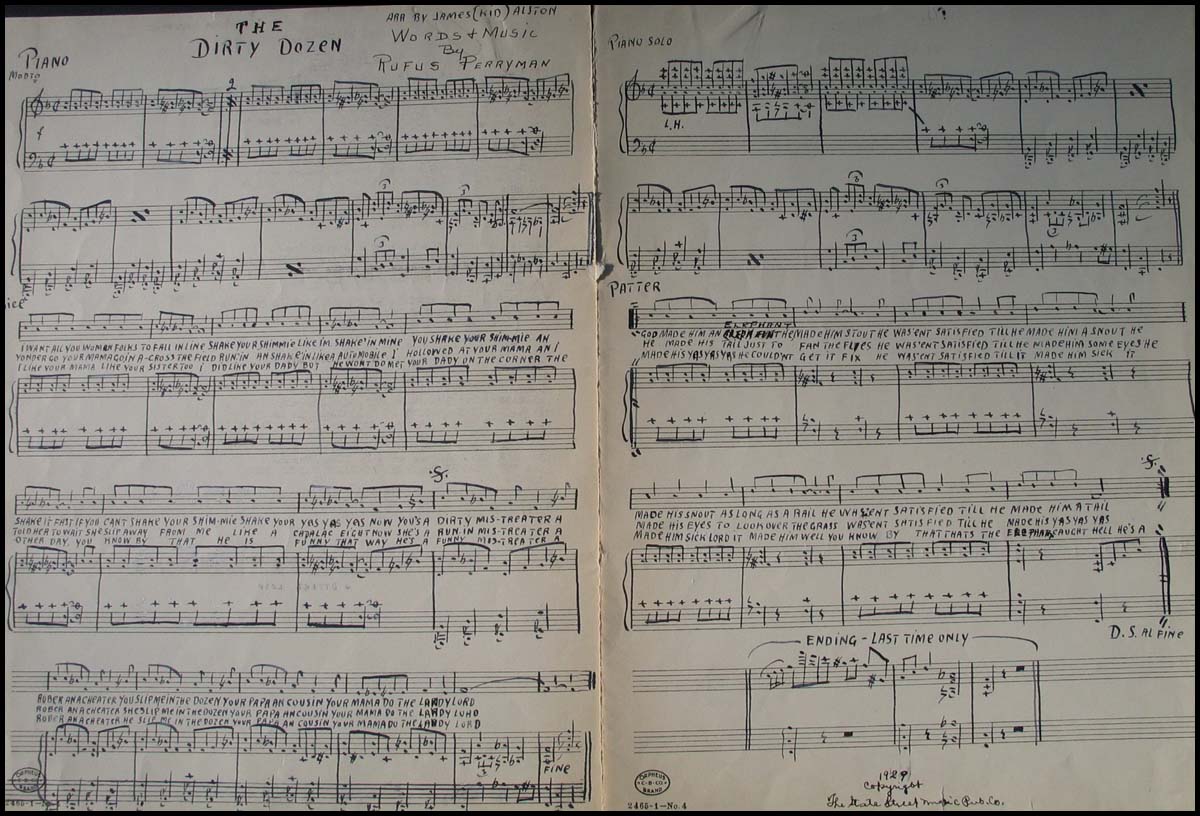 THE
DIRTY DOZEN
ARR BY JAMES (KID) ALSTON
WORDS + MUSIC
By
RUFUS PERRYMAN
PIANO
MODTO
2
f
3
3
3
I WANT ALL YOU WOMEN FOLKS TO FALL IN LINE SHAKE YOUR SHIMMIE LIKE I'M SHAKE'IN MINE YOU SHAKE YOUR SHIM-MIE AN
YONDER GO YOUR MAMA GOIN A-CROSS THE FIELD RUN'IN AN SHAKE'IN LIKE A AUTOMOBILE I HOLLOWED AT YOUR MAMA AN I
I LIKE YOUR MAMA LIKE YOUR SISTER TOO I DID LIKE YOUR DADY BUT HE WONT DO MET YOUR DADY ON THE CORNER THE
SHAKE IT FAST IF YOU CANT SHAKE YOUR SHIM-MIE SHAKE YOUR YAS YAS YAS NOW YOU'S A DIRTY MIS-TREATER A
TOLD HER TO WAIT SHE SLIP AWAY FROM ME LIKE A CADALAC EIGHT NOW SHE'S A RUN'IN MIS-TREATER A
OTHER DAY YOU KNOW BY THAT HE IS A FUNNY THAT WAY HE'S A FUNNY MIS-TREATER A
ROBER AN A CHEATER YOU SLIP ME IN THE DOZEN YOUR PAPA AN COUSIN YOUR MAMA DO THE LARDY LORD
ROBER AN A CHEATER SHE SLIP ME IN THE DOZEN YOUR PAPA AN COUSIN YOUR MAMA DO THE LARDY LORD
ROBER AN A CHEATER HE SLIP ME IN THE DOZEN YOUR PAPA AN COUSIN YOUR MAMA DO THE LARDY LORD
FINE
ORPHEUS
C-B-CO.
BRAND
2465-1-No.
PIANO SOLO
L.H.
3
3
3
3
PATTER
ELEPHANT
GOD MADE HIM AN HE MADE HIM STOUT HE WAS'ENT SATISFIED TILL HE MADE HIM A SNOUT HE
HE MADE HIS TAIL JUST TO FAN THE FLIES HE WAS'ENT SATISFIED TILL HE MADE HIM SOME EYES HE
MADE HIS YAS YAS YAS HE COULD'NT GET IT FIX HE WAS'ENT SATISFIED TILL IT MADE HIM SICK IT
MADE HIS SNOUT AS LONG AS A RAIL HE WAS'ENT SATISFIED TILL HE MADE HIM A TAIL
MADE HIS EYES TO LOOK OVER THE GRASS WAS'ENT SATISFIED TILL HE MADE HIS YAS YAS YAS
MADE HIM SICK LORD IT MADE HIM WELL YOU KNOW BY THAT THATS THE CAUGHT HELL HE'S A
D.S. AL FINE
ENDING - LAST TIME ONLY
ORPHEUS
C-B-CO.
BRAND
2465-1-No. 4
1929
Copyright
The State Street Music Pub. Co.